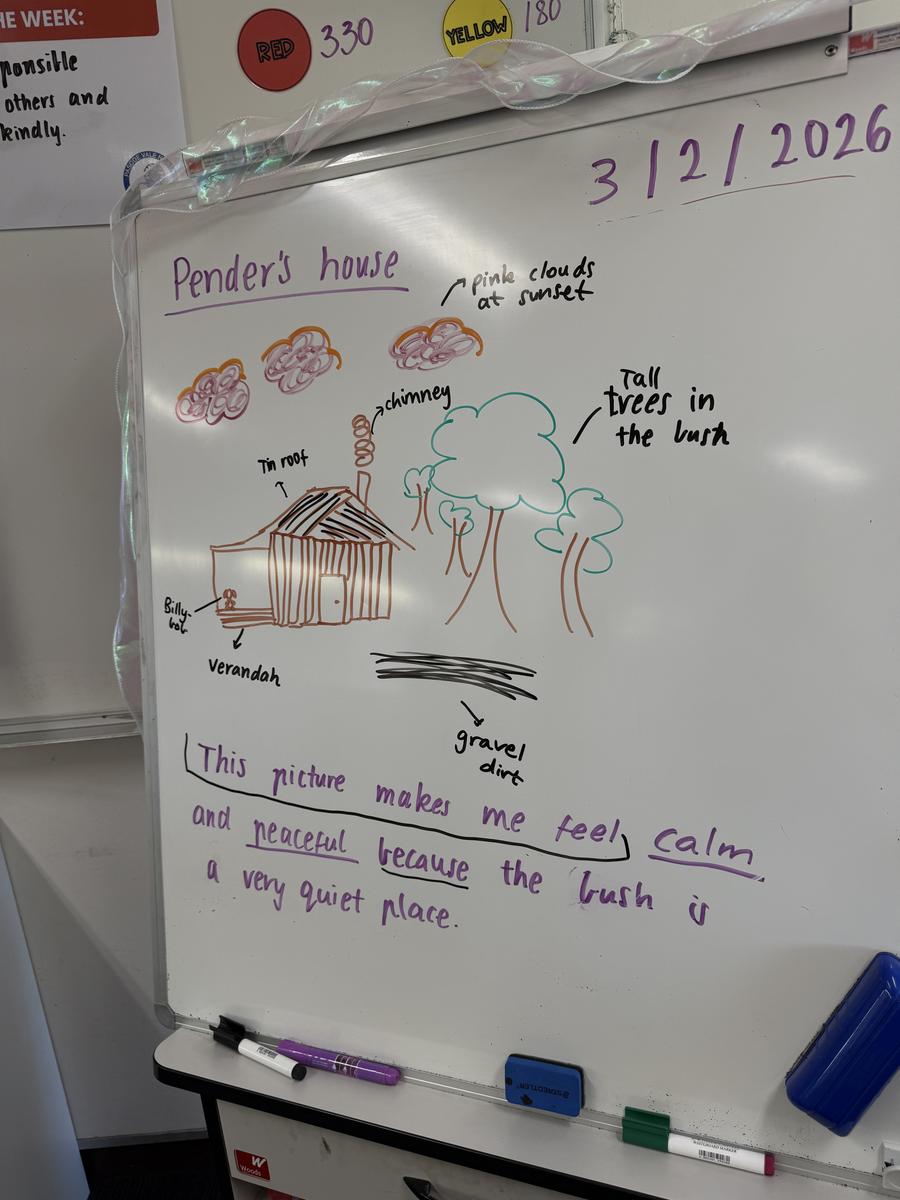 HE WEEK:
ponsible
others and
kindly.
RED 330
YELLOW 180
3/2/2026
Pender's house
pink clouds
at sunset
chimney
Tall
trees in
the bush
Tin roof
Billy-
bob
verandah
gravel
dirt
This picture makes me feel calm
and peaceful because the bush is
a very quiet place.
STAEDTLER
WHITEBOARD MARKER
W
Woods